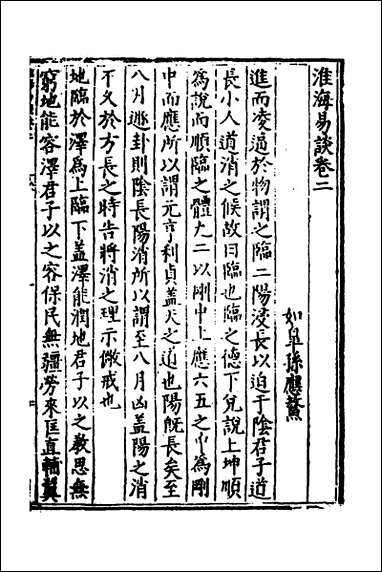 淮海易談卷二
如皐孫應鰲
進而凌逼於物謂之臨二陽浸長以迫于陰君子道
長小人道消之候故曰臨也臨之德下兌說上坤順
為說而順臨之體九二以剛中上應六五之中為剛
中而應所以謂元亨利貞蓋天之道也陽既長矣至
八月遯卦則陰長陽消所以謂至八月凶蓋陽之消
不久於方長之時告將消之理示微戒也
地臨於澤為上臨下蓋澤能潤地君子以之教思無
窮地能容澤君子以之容保民無疆勞來匡直輔翼